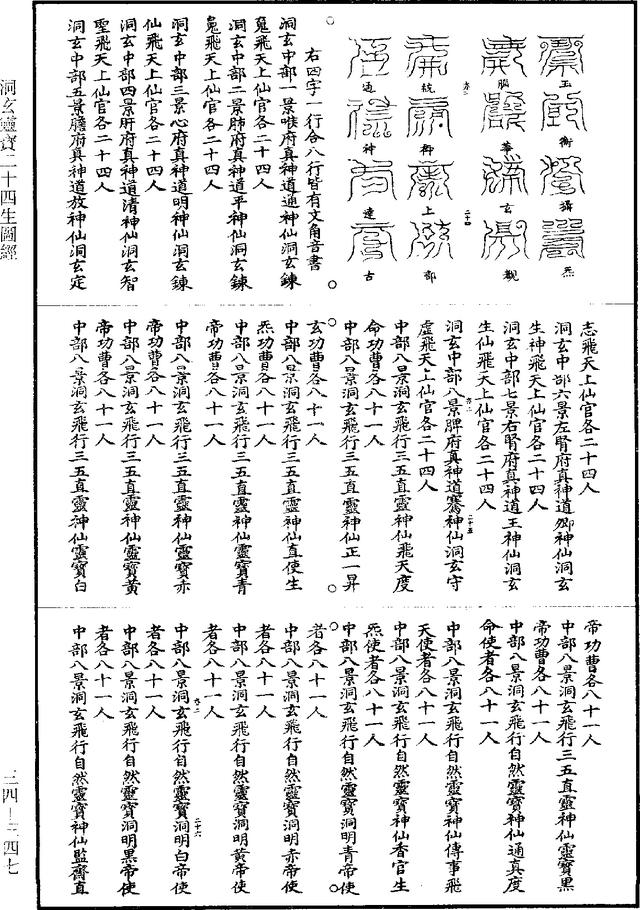 玉 衡 攝 炁
腦 華 玄
二十四
統 上 部
通 神 達 古
右四字一行合八行皆有文角音書
洞玄中部一景喉府真神道通神仙洞玄鍊
蒐飛天上仙官各二十四人
洞玄中部二景肺府真神道平神仙洞玄鍊
蒐飛天上仙官各二十四人
洞玄中部三景心府真神道明神仙洞玄鍊
仙飛天上仙官各二十四人
洞玄中部四景肝府真神道清神仙洞玄智
聖飛天上仙官各二十四人
洞玄中部五景膽府真神道放神仙洞玄定
志飛天上仙官各二十四人
洞玄中部六景左腎府真神道神仙洞玄
生神飛天上仙官各二十四人
洞玄中部七景右腎府真神道王神仙洞玄
生仙飛天上仙官各二十四人
二十五
洞玄中部八景脾府真神道騫神仙洞玄守
虛飛天上仙官各二十四人
中部八景洞玄飛行三五直靈神仙飛天度
命功曹各八十一人
中部八景洞玄飛行三五直靈神仙正一昇
玄功曹各八十一人
中部八景洞玄飛行三五直靈神仙直使生
炁功曹各八十一人
中部八景洞玄飛行三五直靈神仙靈寶青
帝功曹各八十一人
中部八景洞玄飛行三五直靈神仙靈寶赤
帝功曹各八十一人
中部八景洞玄飛行三五直靈神仙靈寶黃
帝功曹各八十一人
中部八景洞玄飛行三五直靈神仙靈寶白
帝功曹各八十一人
中部八景洞玄飛行三五直靈神仙靈寶黑
帝功曹各八十一人
中部八景洞玄飛行自然靈寶神仙通真度
命使者各八十一人
中部八景洞玄飛行自然靈寶神仙傳事飛
天使者各八十一人
中部八景洞玄飛行自然靈寶神仙香官生
炁使者各八十一人
中部八景洞玄飛行自然靈寶洞明青帝使
者各八十一人
中部八景洞玄飛行自然靈寶洞明赤帝使
者各八十一人
中部八景洞玄飛行自然靈寶洞明黃帝使
者各八十一人
二十六
中部八景洞玄飛行自然靈寶洞明白帝使
者各八十一人
中部八景洞玄飛行自然靈寶洞明黑帝使
者各八十一人
中部八景洞玄飛行自然靈寶神仙監齋直
洞玄靈寶二十四生圖經
三四—三四七